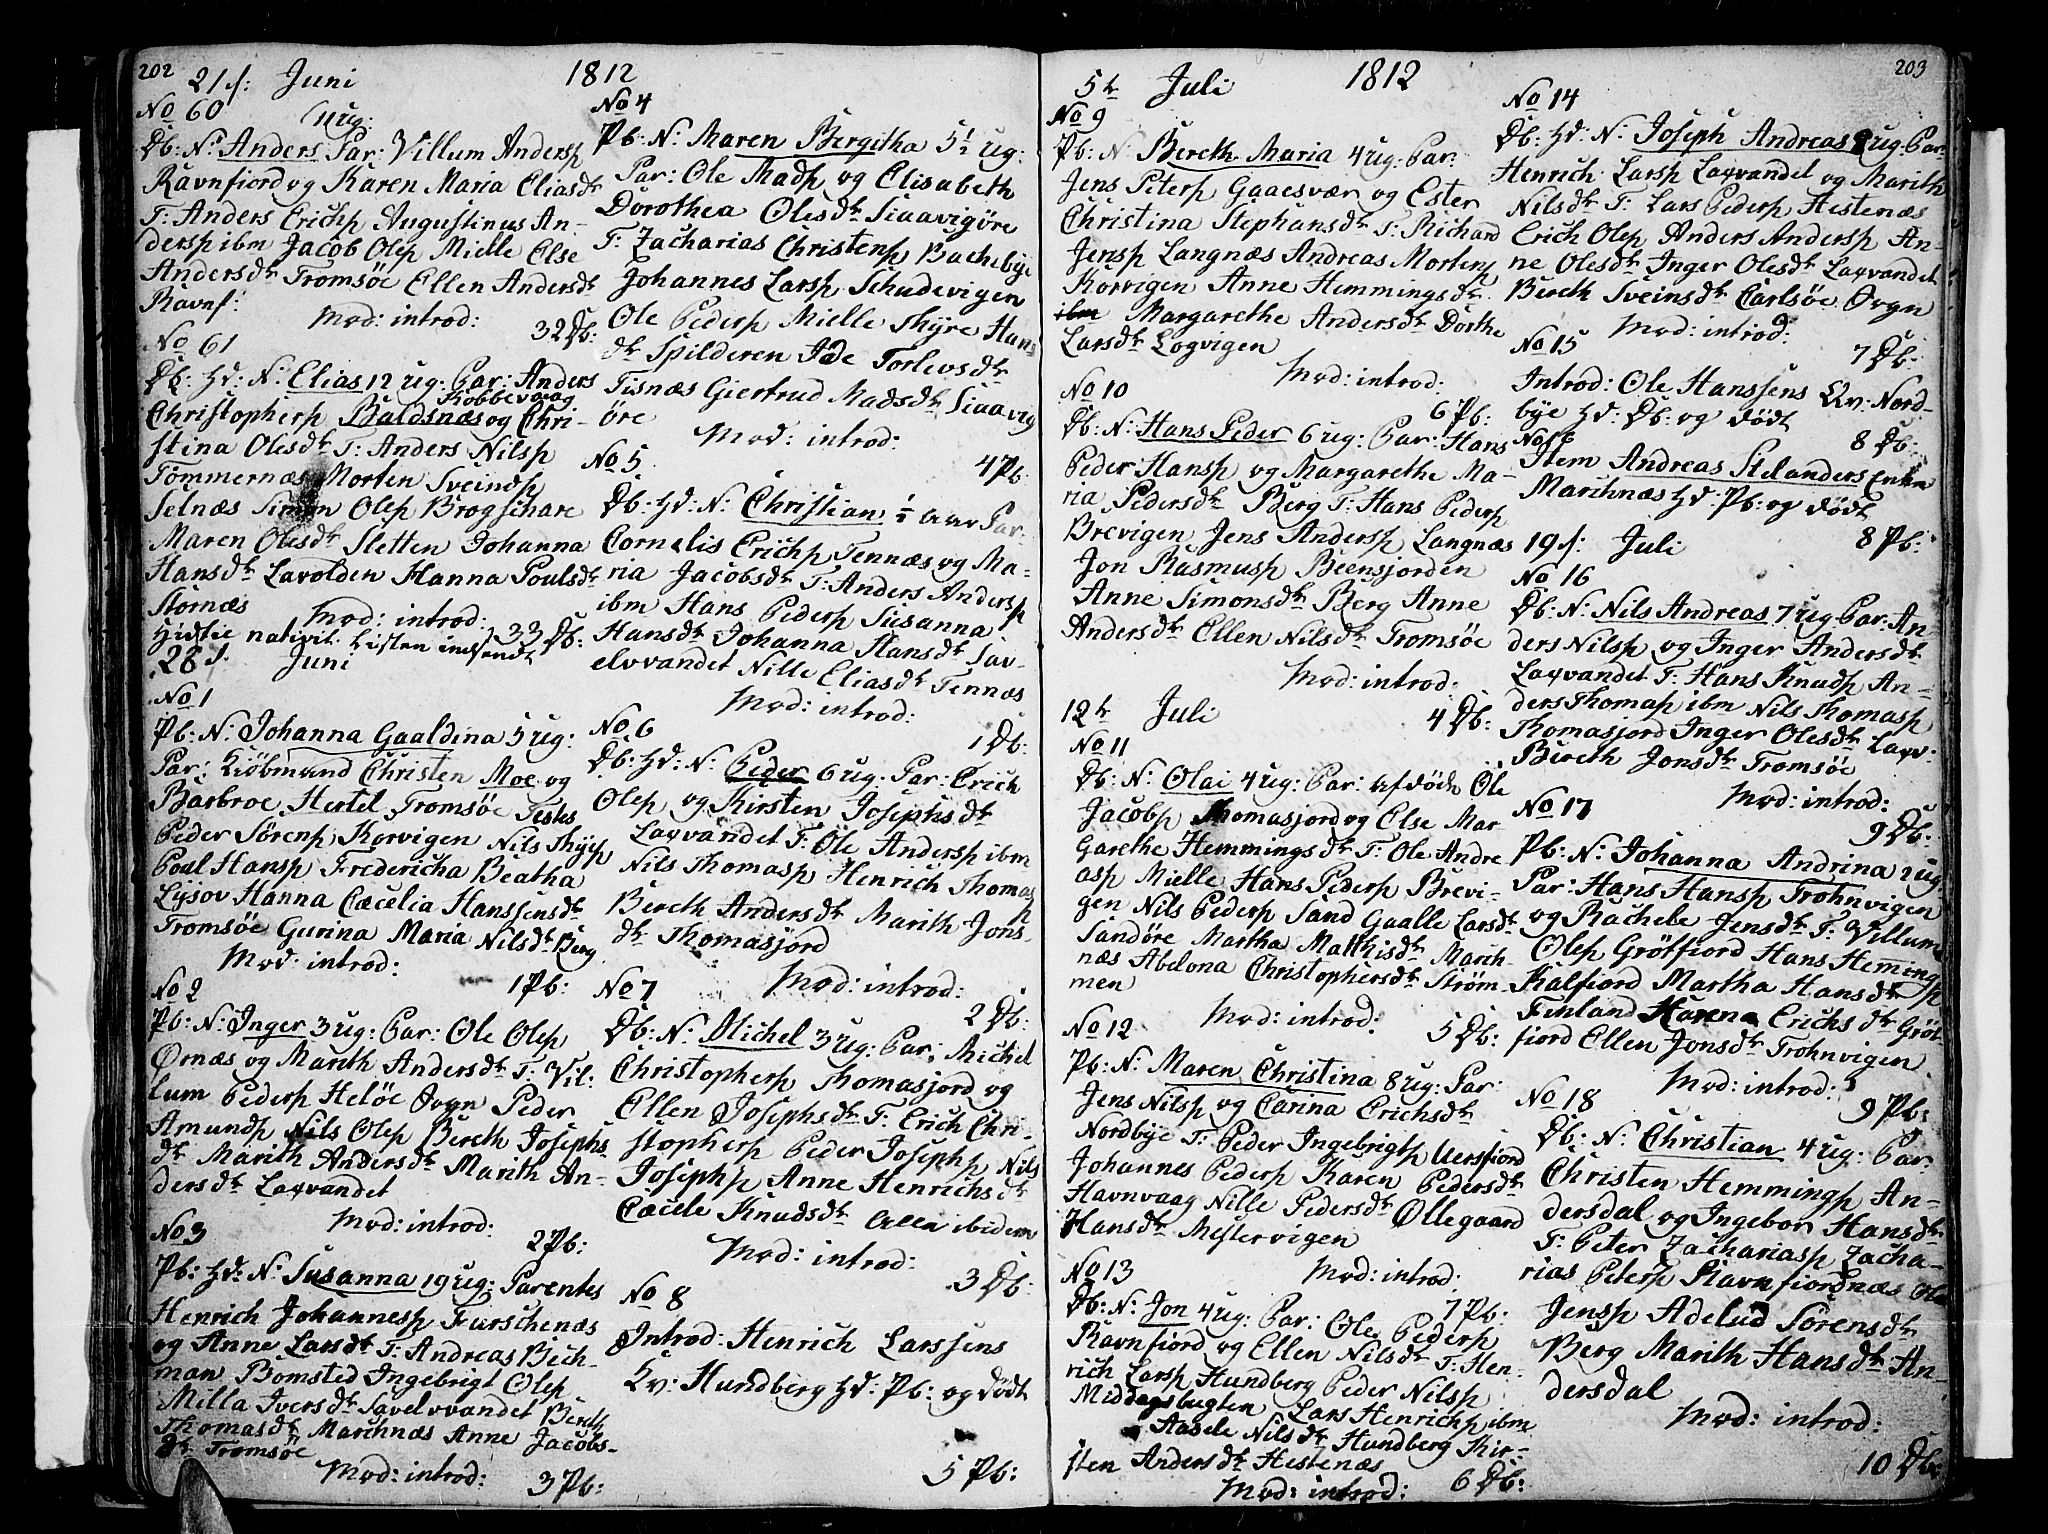 202
21 s: Juni 1812
No 60
4 ug:
Db: N: Anders Par: Villum Andersp
Ravnfiord og Karen Maria Eliasdr
T: Anders Erichp Augustinus An-
dersp ibm Jacob Olep Mielle Else
Andersdr Tromsöe Ellen Andersdr
Ravnf: Mod: introd: 32 Db:
No 61
Db: Hd: N: Elias 12 ug: Par: Anders
Kobbevaag
Christophersp Baldsnæs og Chri-
stina Olesdr T: Anders Nilsp
Tömmernæs Morten Sveindp
Selnæs Simon Olep Brogschare
Maren Olesdr Sletten Johanna
Hansdr Lavolden Hanna Poulsdr
Stornæs Mod: introd: 33 Db:
Hidtil nativit: Listen indsendt
28 s. Juni
No 1
Pb: N: Johanna Gaaldina 5 ug:
Par: Kiöbmand Christen Moe og
Barbroe Hertel Tromsöe Testes
Peder Sörensp Korvigen Nils Thyp
Poul Hansp Fredericha Beatha
Lysov Hanna Cæcelia Hanssensdr
Tromsöe Gurina Maria Nilsdr Berg
Mod: introd: 1 Pb:
No 2
Pb: N: Inger 3 ug: Par: Ole Olep
Ørnæs og Marith Andersdr T: Vil-
lum Pedersp Helöe Ovgn Peder
Amundp Nils Olep Bereth Josephs
dr Marith Andersdr Marith An-
dersdr Laxvandet
Mod: introd: 2 Pb:
No 3
Pb: Hd: N: Susanna 19 ug: Parentes
Henrich Johannesp Furschenæs
og Anne Larsdr T: Andreas Bich-
man Bomsted Ingebrigt Olep
Milla Iversdr Savelvvandet Bereth
Thomasdr Marchnæs Anne Jacobs-
dr Tromsöe
Mod: introd: 3 Pb:
No 4
Pb: N: Maren Bergitha 5½ ug:
Par: Ole Madsp og Elisabeth
Dorothea Olesdr Siaavigöre
T: Zacharias Christensp Bachebye
Johannes Larsp Schudevigen
Ole Pedersp Mielle Thyre Hans
dr Spilderen Ide Torlevsdr
Tisnæs Giertrud Madsdr Siaavig
öre
Mod: introd: 4 Pb:
No 5
Db: Hd: N: Christian ½ aar Par:
Cornelis Erichp Tennæs og Ma-
ria Jacobsdr T: Anders Andersp
ibm Hans Pedersp Susanna
Hansdr Johanna Hansdr Sav-
elvvandet Nille Eliasdr Tennæs
Mod: introd: 1 Db:
No 6
Db: Hd: N: Peder 6 ug: Par: Erich
Olep og Kirsten Josephsdr
Laxvandet T: Ole Andersp ibm
Nils Thomasp Henrich Thomasp
Bereth Andersdr Marith Jons-
dr Thomasjord
Mod: introd: 2 Db:
No 7
Db: N: Michel 3 ug: Par: Michel
Christophersp Thomasjord og
Ellen Josephsdr T: Erich Chri-
stophersp Peder Josephp Nils
Josephp Anne Henrichsdr
Cæcele Knudsdr Alle ibidem
Mod: introd: 3 Db:
No 8
Introd: Henrich Larssens
Qv: Hundberg Hd: Pb: og dödt
5 Pb:
203
5te Juli 1812
No 9
Pb: N: Bereth Maria 4 ug: Par:
Jens Petersp Gaaesvær og Ester
Christina Stephansdr T: Richard
Jensp Langnæs Andreas Mortensp
Korvigen Anne Hemmingsdr
ibm Margarethe Andersdr Dorthe
Larsdr Logvigen
Mod: introd: 6 Pb:
No 10
Db: N: Hans Peder 6 ug: Par: Hans
Peder Hansp og Margarethe Ma-
ria Pedersdr Berg T: Hans Pedersp
Brevigen Jens Andersp Langnæs
Jon Rasmusp Beensjorden
Anne Simonsdr Berg Anne
Andersdr Ellen Nilsdr Tromsöe
Mod: introd: 4 Db:
12te Juli
No 11
Db: N: Olai 4 ug: Par: Afdöde Ole
Jacobp Thomasjord og Else Mar-
garethe Hemmingsdr T: Ole Andre
asp Mielle Hans Pedersp Brevi-
gen Nils Pedersp Sand Gaalle Larsdr
Sandöre Martha Matthisdr March-
næs Abelona Christophersdr Ström-
men
Mod: introd: 5 Db:
No 12
Pb: N: Maren Christina 8 ug: Par:
Jens Nilsp og Carina Erichsdr
Nordbye T: Peder Ingebrigtp Uersfiord
Johannes Pedersp Karen Pedersdr
Havnvaag Nille Pedersdr Øllegaard
Hansdr Mestervigen
Mod: introd: 7 Pb:
No 13
Db: N: Jon 4 ug: Par: Ole Pedersp
Ravnfiord og Ellen Nilsdr T: Hen-
rich Larsp Hundberg Peder Nilsp
Middagsbugten Lars Henrichp ibm
Aasele Nilsdr Hundberg Kir-
sten Andersdr Hestenæs
Mod: introd: 6 Db:
No 14
Db: Hd: N: Joseph Andreas 8 ug: Par:
Henrich Larsp Laxvandet og Marith
Nilsdr T: Lars Pedersp Hestenæs
Erich Olep Anders Andersp An-
ne Olesdr Inger Olesdr Laxvandet
Bereth Sveinsdr Carlsöe Ovgn
Mod: introd: 7 Db:
No 15
Introd: Ole Hanssens Qv: Nord-
bye Hd: Db: og dödt 8 Db:
No 16
Item Andreas Stelanders Enke
Marchnæs Hd: Pb: og dödt
8 Pb:
19 s: Juli
No 16
Db: N: Nils Andreas 7 ug: Par: An-
ders Nilsp og Inger Andersdr
Laxvandet T: Hans Knudp An-
ders Thomasp ibm Nils Thomasp
Thomasjord Inger Olesdr Laxv:
Bereth Jonsdr Tromsöe
Mod: introd: 9 Db:
No 17
Pb: N: Johanna Andrina 2 ug:
Par: Hans Hansp Trohnvigen
og Rachele Jensdr T: Villum
Olep Grötfiord Hans Hemingp
Kalfiord Martha Hansdr
Finland Karen Erichsdr Gröt
fiord Ellen Jonsdr Trohnvigen
Mod: introd: 9 Pb:
No 18
Db: N: Christian 4 ug: Par:
Christen Hemmingp An-
dersdal og Ingebor Hansdr
T: Peter Zachariasp Zacha-
rias Petersp Ravnfiordnæs Ole
Jensp Adelud Sörensdr
Berg Marith Hansdr An-
dersdal
Mod: introd:
10 Db: